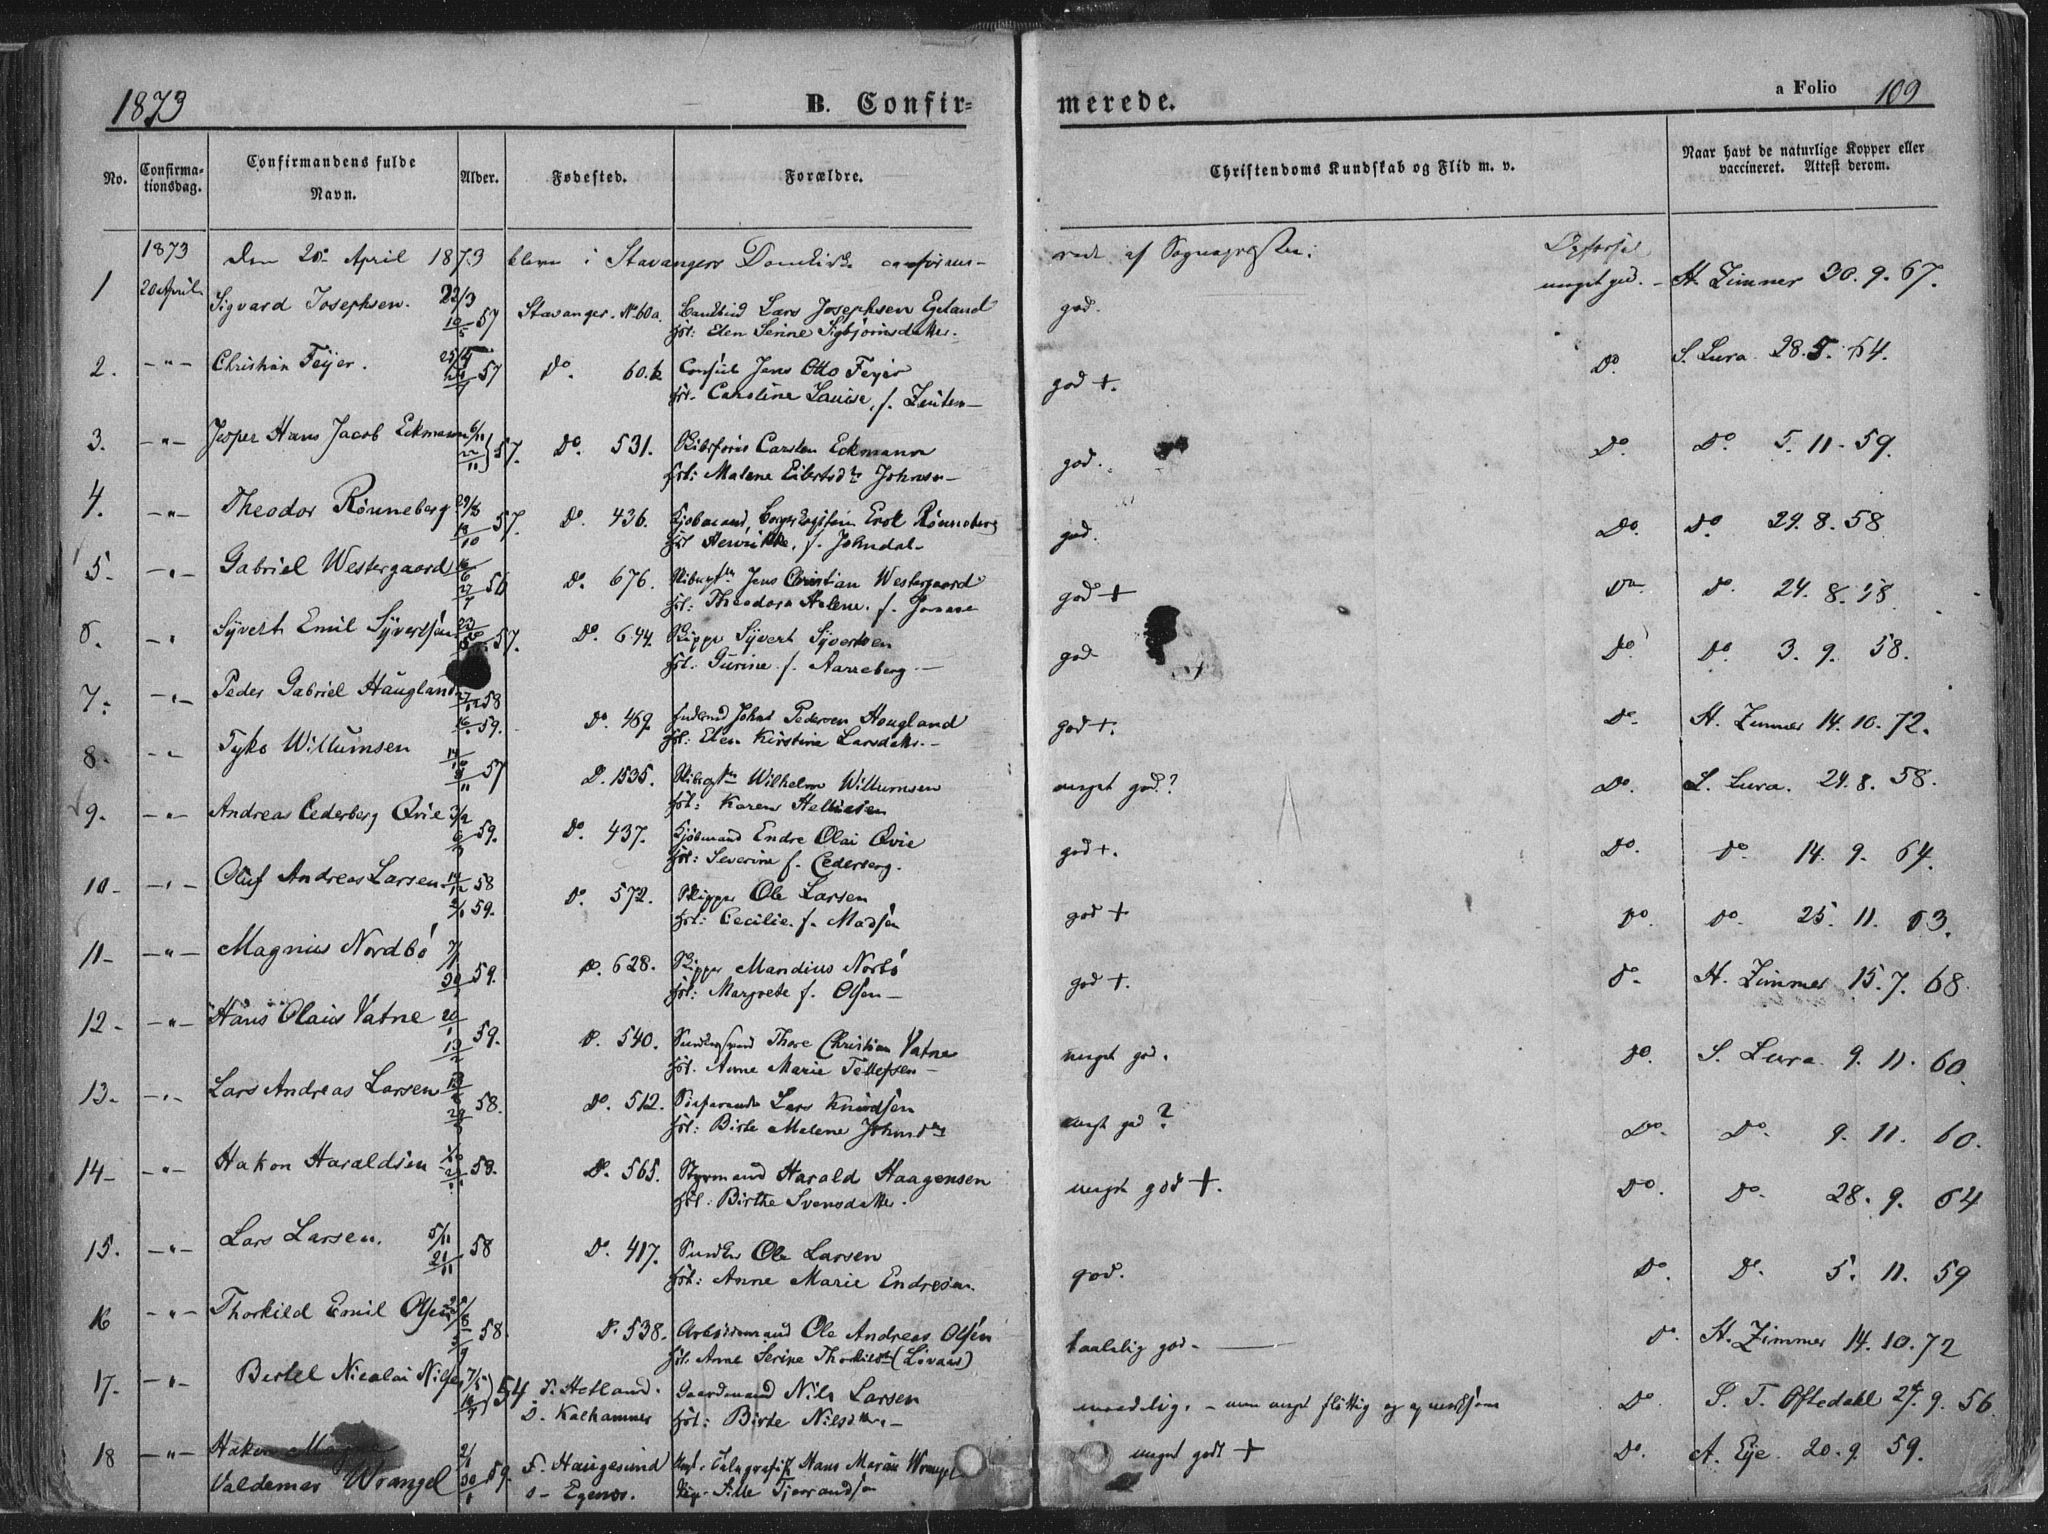 1873 B. Confir- merede. a Folio 109
No. Confirma-tionsdag. Confirmandens fulde Navn. Alder. Fødested. Forældre. Christendoms Kundskab og Flid m. v. Naar havt de naturlige Kopper eller vaccineret. Attest derom.
1873 Den 20de April 1873 bleve i Stavangers Domkirke confirme- rede af Sognepresten: Opførsel
1 20 April Sigvard Josephsen. 57 Stavanger. No 60a Lars Josephsen Egeland god. meget god. H. Zimmer 30. 9. 67.
Hst: Elen Serine Sigbjørnsdatter.
2. -"- Christian Feyer. 57 Do. 60.b Consul Jens Otto Feyer god +. Do. S. Lura 28. 5. 64.
Hst. Caroline Louise, f. Zeuten
3. -"- Jesper Hans Jacob Eckmann 6/11 57. Do. 531. Carsten Eckmann god. Do. Do. 5. 11. 59.
Hst: Malene Johnsen
4. -"- Theodor Rønneberg 29/8 57. Do. 436. Kjøbmand, Rønneberg god. Do. Do 29. 8. 58
Hst Henrikke, f. Johndal
5. -"- Gabriel Westergaard 56 Do. 676. Jens Christian Westergaard god + Do. Do. 24. 8. 58
Hst: Theodora Helene, f. Jonasen
6. -"- Syvert Emil Syvertsen 57. Do. 644. Skipper Syvert Syvertsen god Do. Do. 3. 9. 58.
Hst: Gurine f. Aarreberg.
7. -"- Peder Gabriel Haugland 58 59. Do. 469. Johns Pedersen Hougland god +. Do. H. Zimmer 14. 10. 72.
Hst: Elen Kirstine Larsdatter.
8. -"- Tyko Willumsen 57 Do. 1535. Wilhelm Willumsen meget god? Do. S. Lura. 24. 8. 58.
Hst: Karen Helliesen
9. -"- Andreas Cederberg Qvie 3/2 59. Do. 437. Kjøbmand Endre Olai Qvie god +. Do. Do. 14. 9. 64.
Hst: Severine f. Cederberg.
10 -"- Oluf Andreas Larsen 14/12 58 59. Do. 572. Skipper Ole Larsen god + Do. Do. 25. 11. 63.
Hst: Cecilie. f. Madsen
11. -"- Magnus Nordbø 7/1 59. Do. 628. Skipper Mandius Norbø god +. Do. H. Zimmer 15. 7. 68
Hst: Margrete f. Olsen
12. -"- Hans Olaus Vatne 20/1 59. Do. 540. Thore Christian Vatne meget god. Do. S. Lura 9. 11. 60.
Hst. Anne Marie Tellefsen
13. -"- Lars Andreas Larsen 58. Do. 512. Søfarende Lars Knudsen meget god? Do. Do. 9. 11. 60.
Hst: Birte Malene
14 -"- Hakon Haraldsen 59. Do. 565. Styrmand Harald Haagensen meget god +. Do. Do. 28. 9. 64
Hst: Birthe Svensdatter.
15. -"- Lars Larsen. 5/11 21/11 58 Do. 417. Ole Larsen god. Do. Do. 5. 11. 59
Hst: Anne Marie Endresen.
16 -"- Thorkild Emil Olsen 58. Do. 538. Arbeidsmand Ole Andreas Olsen taalelig god. Do. H. Zimmer 14. 10. 72
Hst. Anne Serine
17. -"- Bertel Nicolai Nilsen 7/5 54 F. Hetland. Gaardmand Nils Larsen maadelig. - men meget flittig og Do. S. T. Oftedahl 27. 9. 56.
D. Kalhammer Hst: Birte Nilsdatter
18 -"- Hakon Magne 2/1 59. F. Haugesund Hans Wrangel meget godt + Do. A. Eje 20. 9. 59.
Valdemar Wrangel Egenæs.